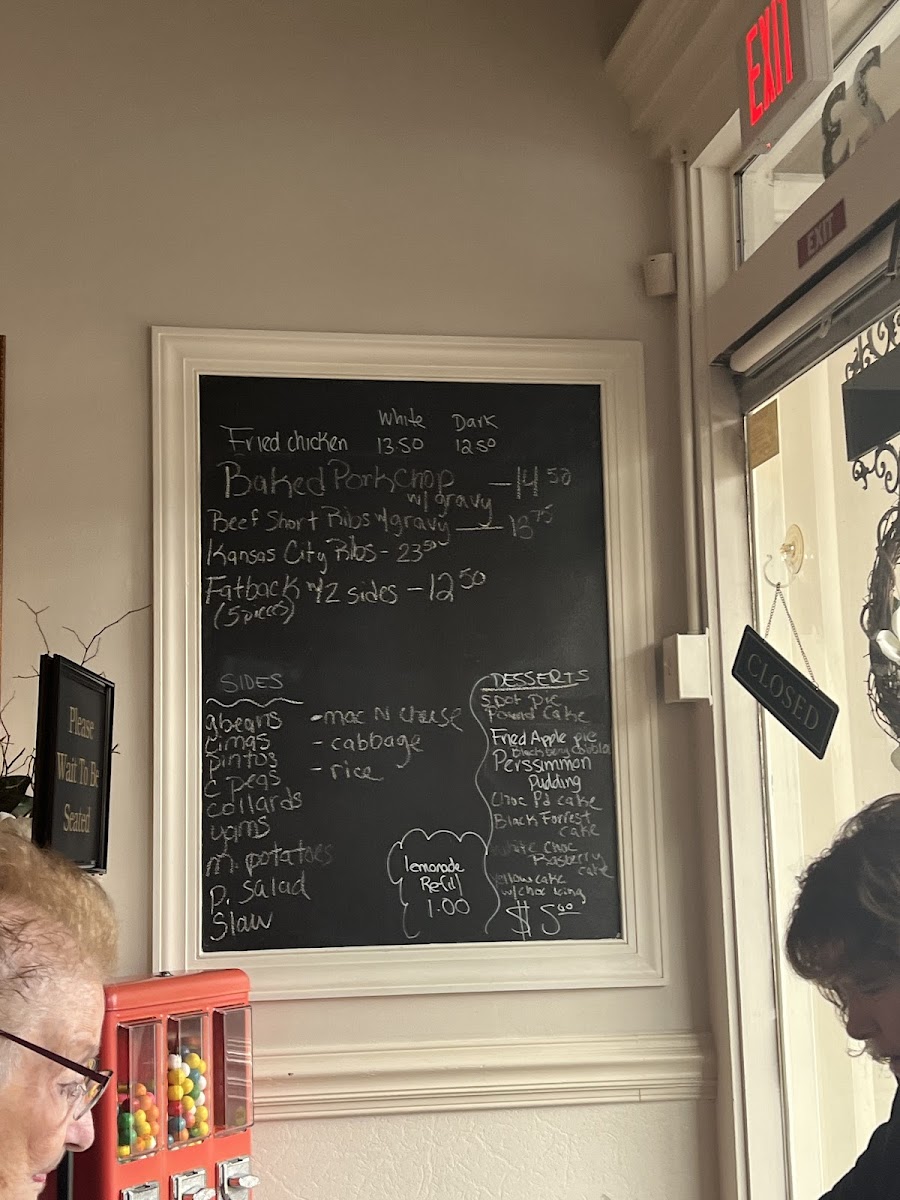 EXIT
23
EXIT
White Dark
Fried chicken 13.50 12.50
Baked Porkchop — 14 50
w/ gravy
Beef Short Ribs w/ gravy — 13 75
Kansas City Ribs - 23 50
Fatback w/ 2 sides - 12 50
(5 pieces)
SIDES
gbeans
Limas
pintos
C peas
collards
yams
m. potatoes
p. salad
Slaw
- mac N cheese
- cabbage
- rice
DESSERTS
Spot pie
Pound Cake
Fried Apple pie
blackberry cobbler
Perssimmon
Pudding
Choc Pd cake
Black Forrest
cake
white choc
Rasberry
cake
Yellow cake
w/ choc icing
$ 5.00
lemonade
Refill
1.00
CLOSED
Please
Wait To Be
Seated